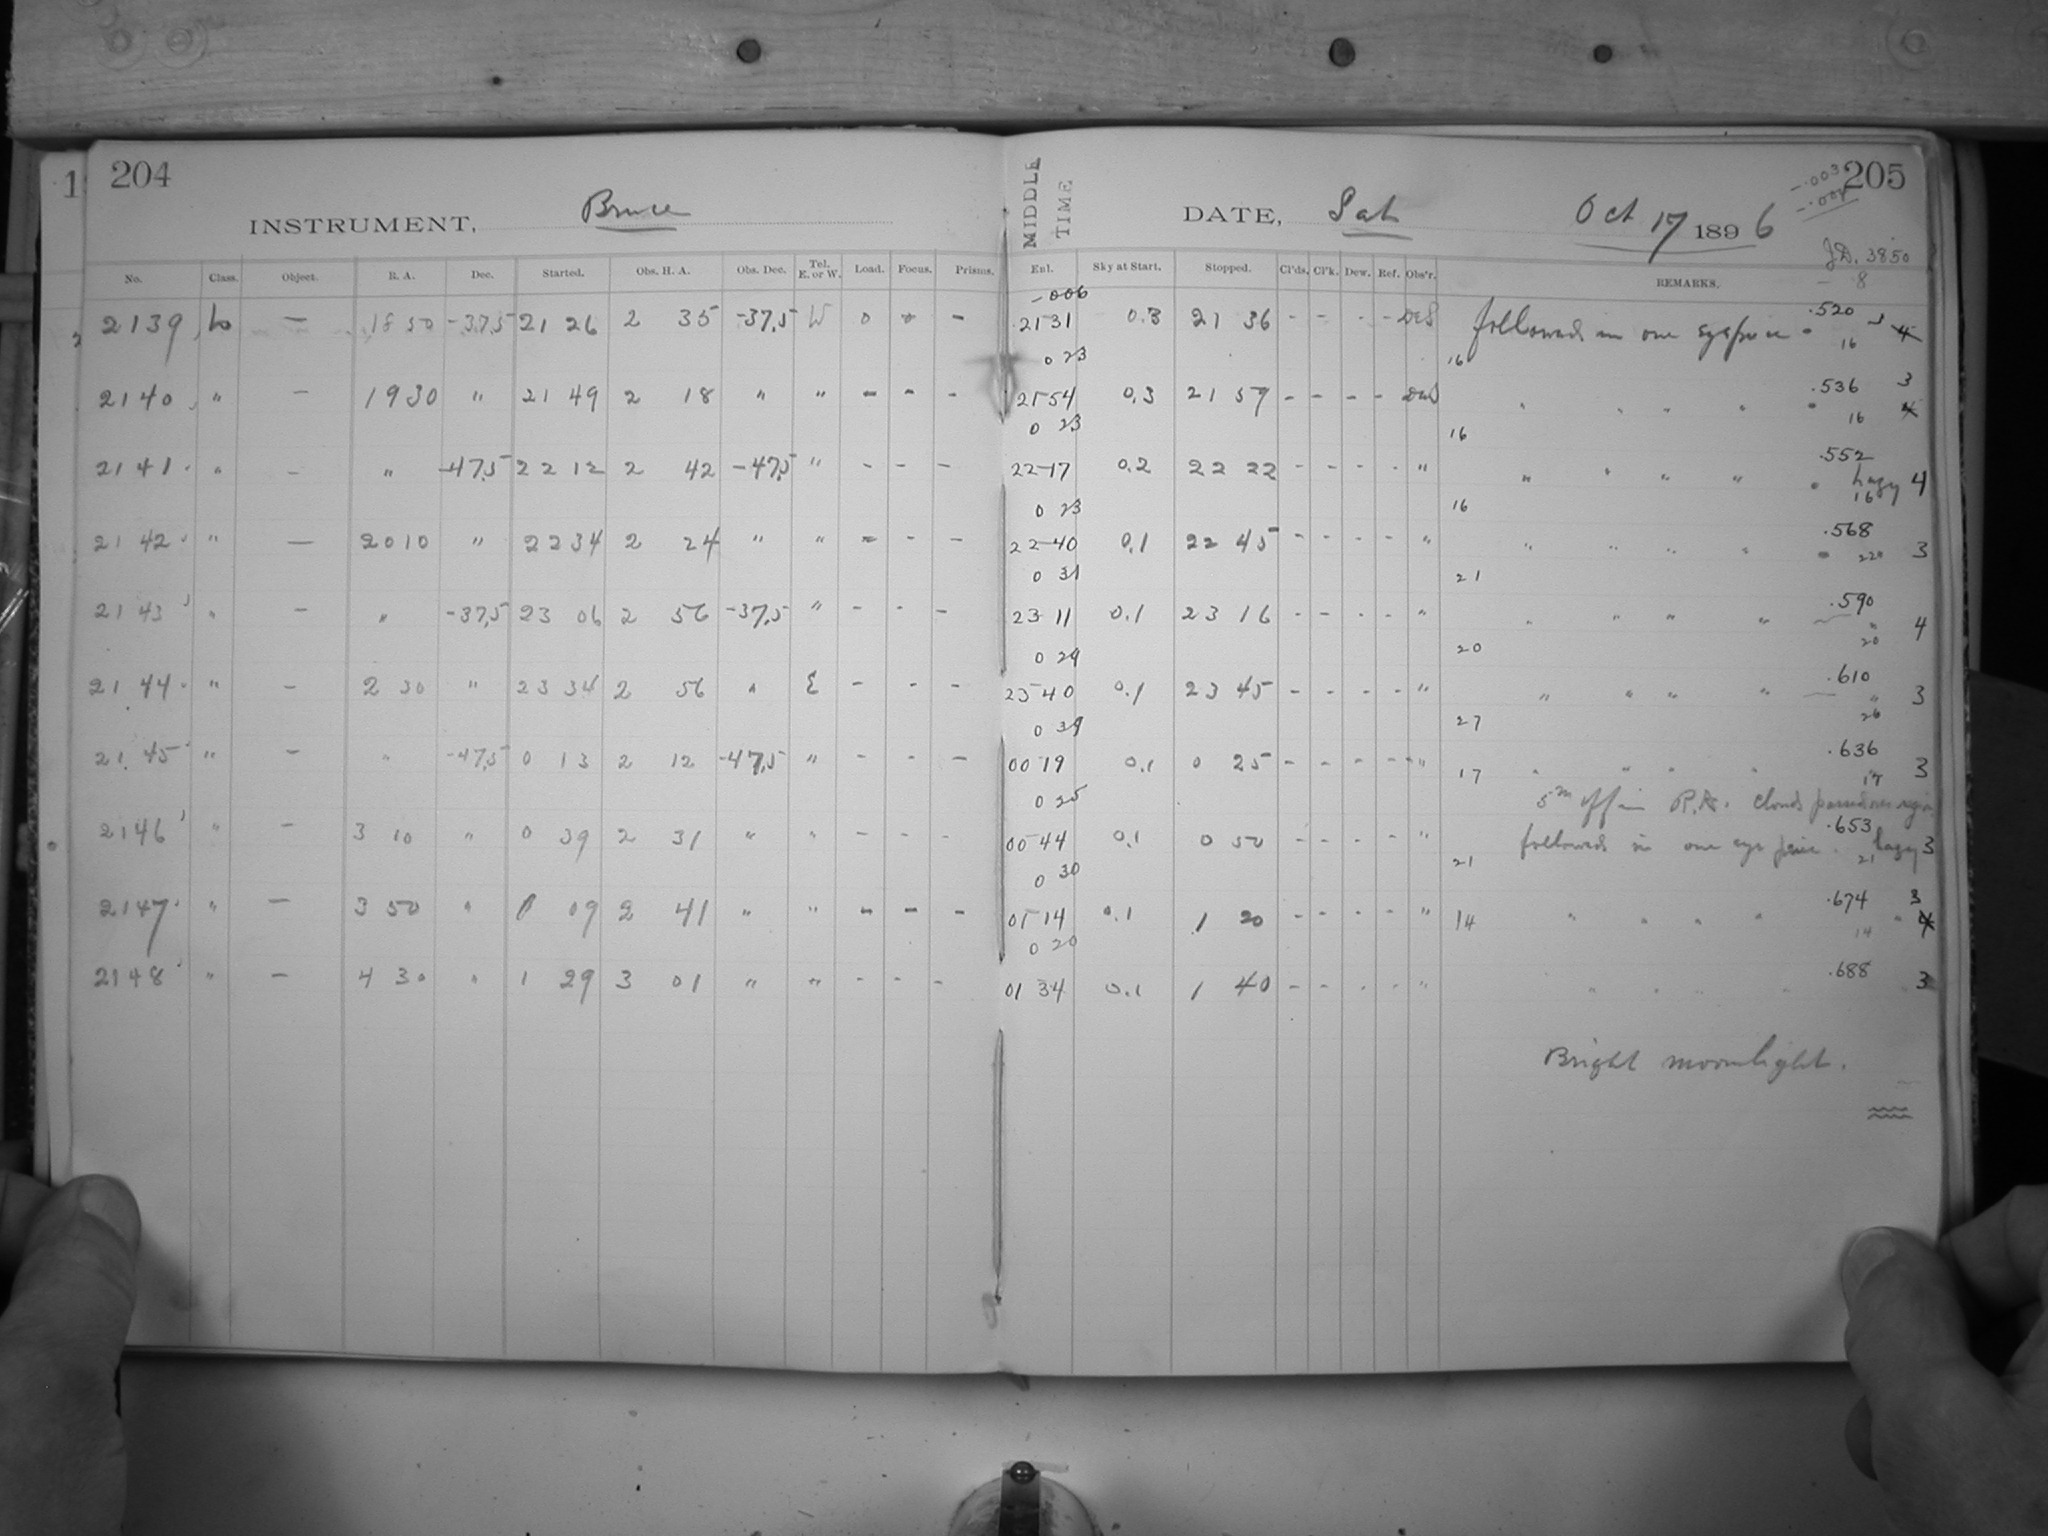 1
204
MIDDLE TIME
205
-.003
INSTRUMENT, Bruce
DATE, Sat Oct 17 1896
J.D. 3850
- 8
No. Class. Object. R. A. Dec. Started. Obs. H. A. Obs. Dec. Tel. E. or W. Load. Focus. Prisms. Exl. Sky at Start. Stopped. Cl'ds. Cl'k. Dew. Ref. Obs'r. REMARKS.
-006
2139 Lo — 1850 -37,5 21 26 2 35 -37,5 W 0 0 - 21-31 0.3 21 36 - - - - DeS followed in one eyepiece .520 4
0 23 16 16
2140 " — 1930 " 21 49 2 18 " " - - - 21-54 0.3 21 59 - - - - DeS " " " " .536 3
0 23 16 16 4
2141 " - " -47,5 22 12 2 42 -47,5 " - - - 22-17 0.2 22 22 - - - - " " " " " .552 hazy 4
0 23 16 16
2142 " — 2010 " 22 34 2 24 " " - - - 22-40 0.1 22 45 - - - - " " " " " .568 3
0 31 21 22
2143 " - " -37,5 23 06 2 56 -37,5 " - - - 23-11 0.1 23 16 - - - - " " " " " .590 " 4
0 29 20 20
2144 " - 2 30 " 23 34 2 56 " E - - - 23-40 0.1 23 45 - - - - " " " " " .610 " 3
0 39 27 26
2145 " - " -47,5 0 13 2 12 -47,5 " - - - 00-19 0.1 0 25 - - - - " " " " " .636 3
0 25 17 17
5m off in R.A. clouds passed over region
2146 " - 3 10 " 0 39 2 31 " " - - - 00-44 0.1 0 50 - - - - " followed in one eye piece. .653 hazy 3
0 30 21 21
2147 " - 3 50 " 1 09 2 41 " " - - - 01-14 0.1 1 20 - - - - " " " " " .674 " 3 4
0 20 14 14
2148 " - 4 30 " 1 29 3 01 " " - - - 01 34 0.1 1 40 - - - - " " " " " .688 " 3
Bright moonlight.